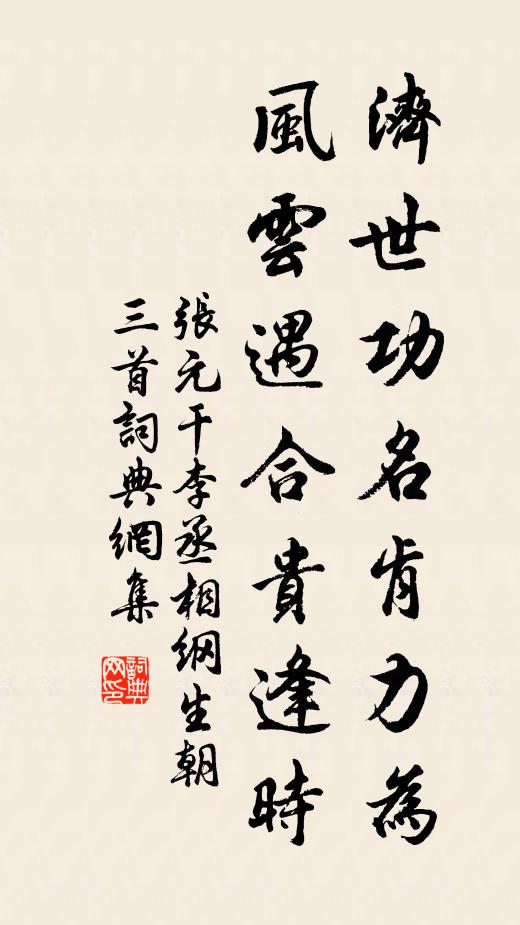 濟世功名肯力為
風雲遇合貴逢時
張元干李丞相纲生朝
三首詞典網集
詞典網印